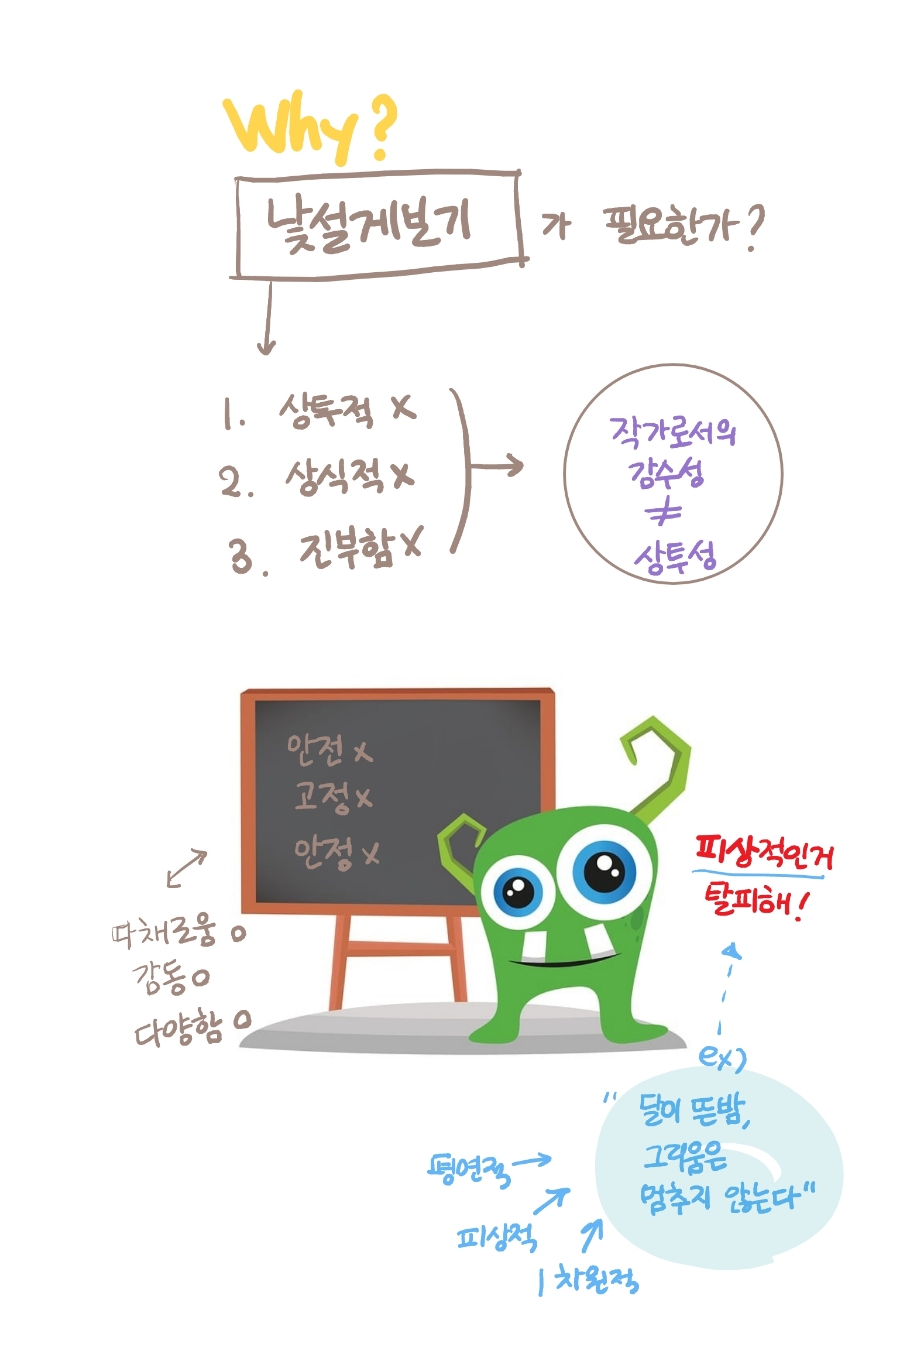 Why?
낯설게보기 가 필요한가?
1. 상투적 X
2. 상식적 X
3. 진부함 X
작가로서의
감수성
≠
상투성
안전 X
고정 X
안정 X
따채로움 o
감동 o
다양함 o
피상적인거
탈피해!
ex)
" 달이 뜬밤,
그리움은
멈추지 않는다"
평연적
피상적
1차원적